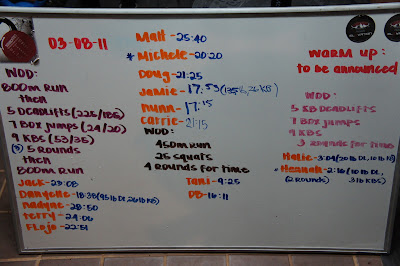 03-08-11
WOD:
800m RUN
then
5 DEADLIFTS (225/185)
7 BOX JUMPS (24/20)
9 KBS (53/35)
5 ROUNDS
then
800m RUN
JACK-29:08
DANYELLE-18:38 (95 lb DL, 26 lb KB)
NADYNE-28:50
terry-24:06
FLOJO-22:51
Matt-25:40
* Michele-20:20
Doug-21:25
Jamie-17:53 (135lb, 26 KB)
NUNN-17:15
CARRIE-21:15
WOD:
450m RUN
25 squats
4 ROUNDS for time
Tani-9:25
DB-16:11
WARM UP:
to be announced
WOD:
5 KB DEADLIFTS
7 BOX JUMPS
9 KBS
3 rounds for time
Halie-3:04 (10 lb DL, 10 lb KB)
Hennah-2:16 (10 lb DL,
(2 Rounds) 3 lb KBS)